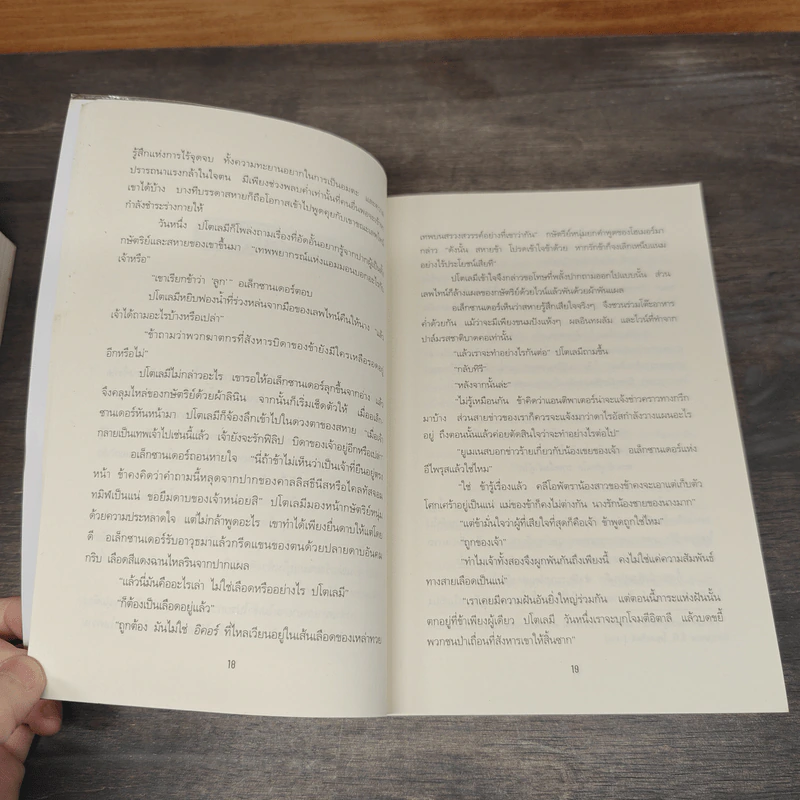 รู้สึกแห่งการไร้จุดจบ ทั้งความทะยานอยากในการเป็นอมตะ และความ
ปรารถนาแรงกล้าในใจตน มีเพียงช่วงพลบค่ำเท่านั้นที่คนอื่นพอจะเข้าหา
เขาได้บ้าง บางทีบรรดาสหายก็ถือโอกาสเข้าไปพูดคุยกับเขาขณะ
กำลังชำระร่างกายให้
วันหนึ่ง ปโตเลมีก็โพล่งถามเรื่องที่อัดอั้นอยากรู้จากปากผู้เป็นทั้ง
กษัตริย์และสหายของเขาขึ้นมา “เทพพยากรณ์แห่งแอมมอนบอกอะไรกับ
เจ้าหรือ”
“เขาเรียกข้าว่า ‘ลูก’ ” อเล็กซานเดอร์ตอบ
ปโตเลมีหยิบฟองน้ำที่ร่วงหล่นจากมือของเลพไทน์คืนให้นาง “แล้ว
เจ้าได้ถามอะไรบ้างหรือเปล่า”
“ข้าถามว่าพวกฆาตกรที่สังหารบิดาของข้ายังมีใครเหลือรอดอยู่
อีกหรือไม่”
ปโตเลมีไม่กล่าวอะไร เขารอให้อเล็กซานเดอร์ลุกขึ้นจากอ่าง แล้ว
จึงคลุมไหล่ของกษัตริย์ด้วยผ้าลินิน จากนั้นก็เริ่มเช็ดตัวให้ เมื่ออเล็ก-
ซานเดอร์หันหน้ามา ปโตเลมีก็จ้องลึกเข้าไปในดวงตาของสหาย “เมื่อเจ้า
กลายเป็นเทพเจ้าไปเช่นนี้แล้ว เจ้ายังจะรักฟิลิป บิดาของเจ้าอยู่อีกหรือเปล่า”
อเล็กซานเดอร์ถอนหายใจ “นี่ถ้าข้าไม่เห็นว่าเป็นเจ้าที่ยืนอยู่ตรง
หน้า ข้าคงคิดว่าคำถามนี้หลุดจากปากของคาลลิสธีนีสหรือไคลทัสจอม
ทมิฬเป็นแน่ ขอยืมดาบของเจ้าหน่อยสิ” ปโตเลมีมองหน้ากษัตริย์หนุ่ม
ด้วยความประหลาดใจ แต่ไม่กล้าพูดอะไร เขาทำได้เพียงยื่นดาบให้แต่โดย
ดี อเล็กซานเดอร์รับอาวุธมาแล้วกรีดแขนของตนด้วยปลายดาบอันคม
กริบ เลือดสีแดงฉานไหลรินจากปากแผล
“แล้วนี่มันคืออะไรเล่า ไม่ใช่เลือดหรืออย่างไร ปโตเลมี”
“ก็ต้องเป็นเลือดอยู่แล้ว”
“ถูกต้อง มันไม่ใช่ อิคอร์ ที่ไหลเวียนอยู่ในเส้นเลือดของเหล่าทวย
18
เทพบนสรวงสวรรค์อย่างที่เขาว่ากัน” กษัตริย์หนุ่มยกคำพูดของโฮเมอร์มา
กล่าว “ดังนั้น สหายข้า โปรดเข้าใจข้าด้วย หากรักข้าก็จงเลิกเหน็บแนม
อย่างไร้ประโยชน์เสียที”
ปโตเลมีเข้าใจจึงกล่าวขอโทษที่พลั้งปากถามออกไปแบบนั้น ส่วน
เลพไทน์ก็ล้างแผลของกษัตริย์ด้วยไวน์แล้วพันด้วยผ้าพันแผล
อเล็กซานเดอร์เห็นว่าสหายรู้สึกเสียใจจริงๆ จึงชวนร่วมโต๊ะอาหาร
ค่ำด้วยกัน แม้ว่าจะมีเพียงขนมปังแห้งๆ ผลอินทผลัม และไวน์ที่ทำจาก
ปาล์มรสชาติบาดคอเท่านั้น
“แล้วเราจะทำอย่างไรกันต่อ” ปโตเลมีถามขึ้น
“กลับทีรี”
“หลังจากนั้นล่ะ”
“ไม่รู้เหมือนกัน ข้าคิดว่าแอนติพาเตอร์น่าจะแจ้งข่าวคราวทางกรีก
มาบ้าง ส่วนสายข่าวของเราก็ควรจะแจ้งมาว่าดาไรอัสกำลังวางแผนอะไร
อยู่ ถึงตอนนั้นแล้วค่อยตัดสินใจว่าจะทำอย่างไรต่อไป”
“ยูเมเนสบอกข่าวร้ายเกี่ยวกับน้องเขยของเจ้า อเล็กซานเดอร์แห่ง
อีไพรุสแล้วใช่ไหม”
“ใช่ ข้ารู้เรื่องแล้ว คลีโอพัตราน้องสาวของข้าคงจะเอาแต่เก็บตัว
โศกเศร้าอยู่เป็นแน่ แม่ของข้าก็คงไม่ต่างกัน นางรักน้องชายของนางมาก”
“แต่ข้ามั่นใจว่าผู้ที่เสียใจที่สุดก็คือเจ้า ข้าพูดถูกใช่ไหม”
“ถูกของเจ้า”
“ทำไมเจ้าทั้งสองจึงผูกพันกันถึงเพียงนี้ คงไม่ใช่แค่ความสัมพันธ์
ทางสายเลือดเป็นแน่”
“เราเคยมีความฝันอันยิ่งใหญ่ร่วมกัน แต่ตอนนี้ภาระแห่งฝันนั้น
ตกอยู่ที่ข้าเพียงผู้เดียว ปโตเลมี วันหนึ่งเราจะบุกโจมตีอิตาลี แล้วบดขยี้
พวกชนป่าเถื่อนที่สังหารเขาให้สิ้นซาก”
19